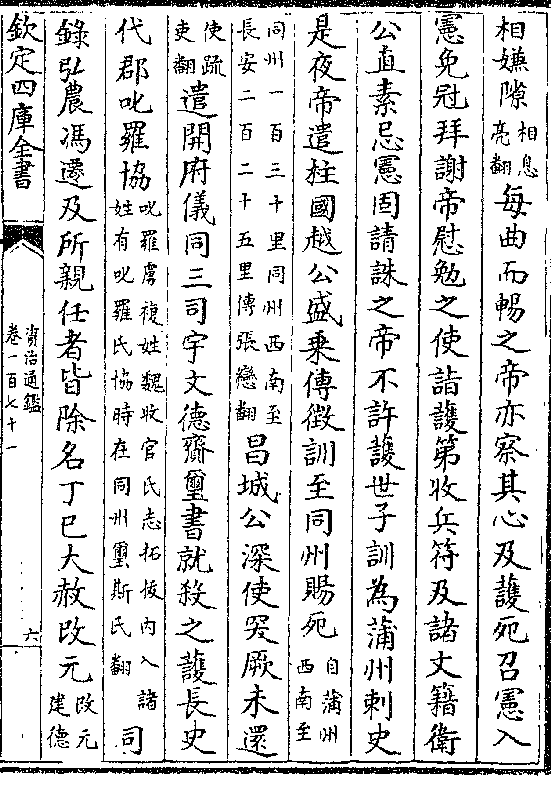 相嫌隙相息亮翻每曲而暢之帝亦察其心及護死召憲入
憲免冠拜謝帝慰勉之使詣護第收兵符及諸文籍衛
公直素忌憲固請誅之帝不許護世子訓為蒲州刺史
是夜帝遣柱國越公盛乗傳徵訓至同州賜死自蒲州西南至
同州一百三十里同州西南至長安二百二十五里傳張戀翻昌城公深使突厥未還
使疏吏翻遣開府儀同三司宇文德齎璽書就殺之護長史
代郡叱羅協叱羅虜複姓魏收官氏志拓拔内入諸姓有叱羅氏協時在同州璽斯氏翻司
錄弘農馮遷及所親任者皆除名丁巳大赦改元改元建德
欽定四庫全書
資治通鑑
卷一百七十一
六